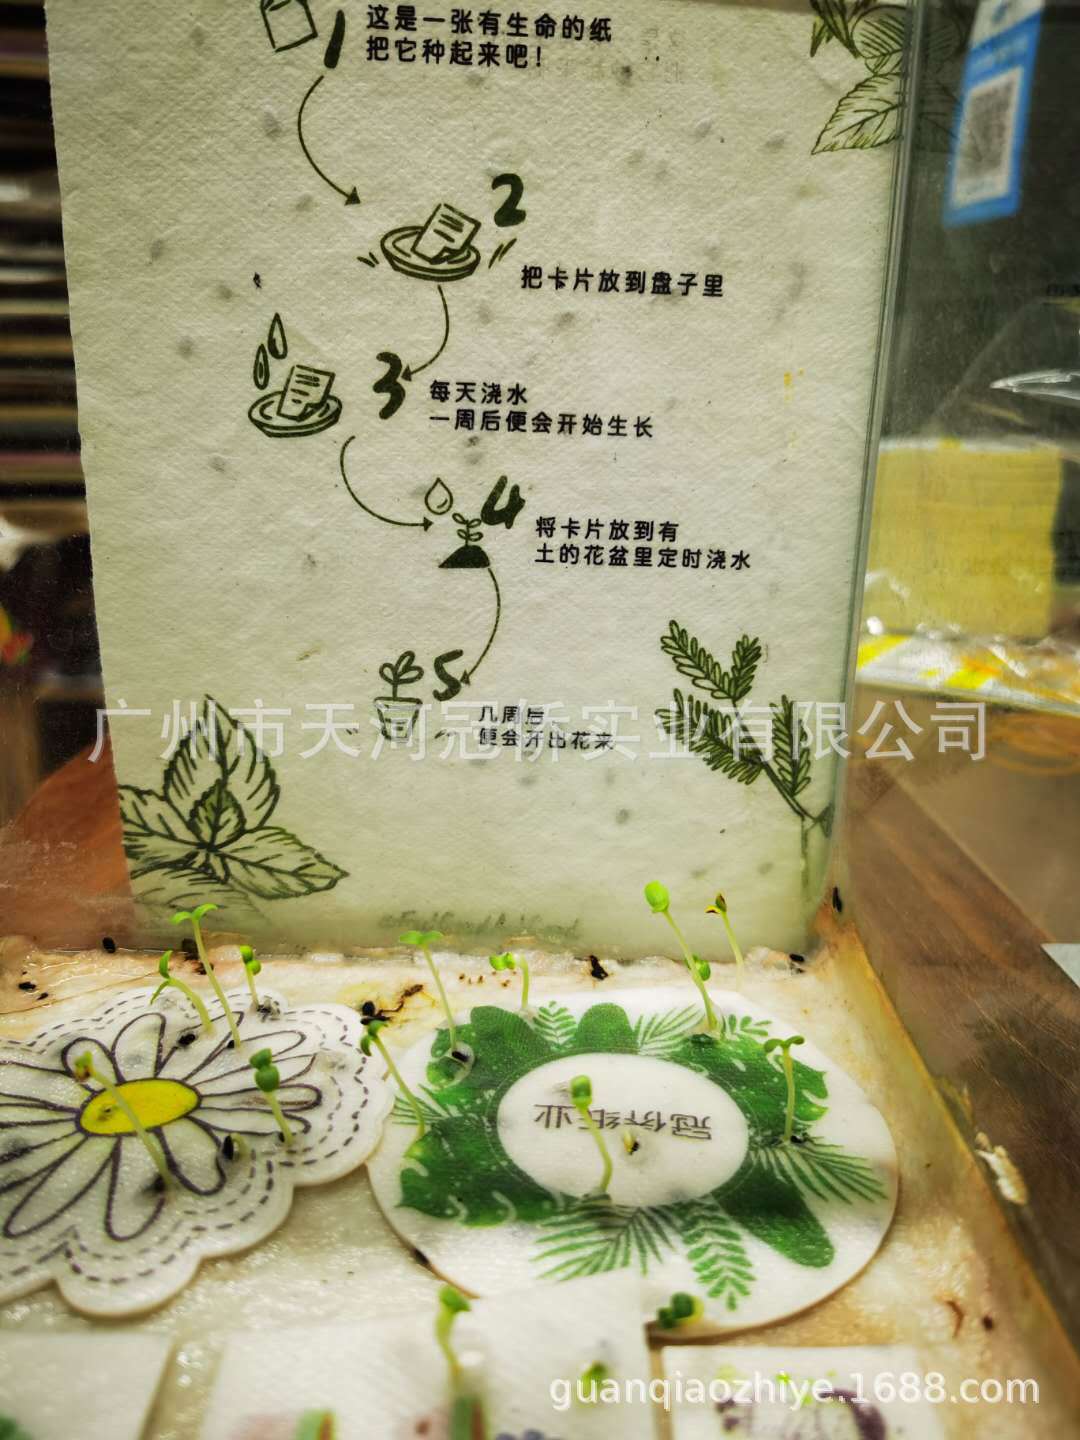 1
这是一张有生命的纸
把它种起来吧！
2
把卡片放到盘子里
3
每天浇水
一周后便会开始生长
4
将卡片放到有
土的花盆里定时浇水
5
几周后，
便会开出花来
广州市天河冠侨实业有限公司
冠侨纸业
guanqiaozhiye.1688.com